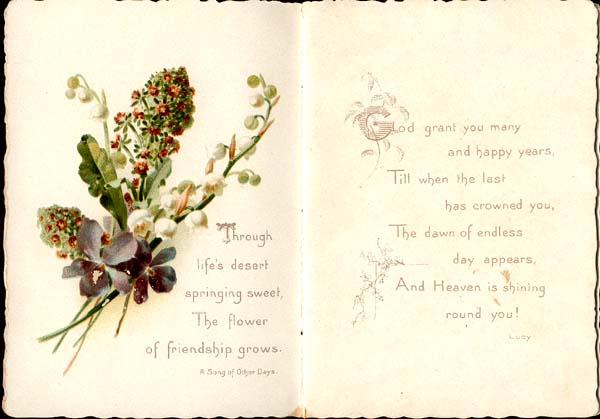 Through
life's desert
springing sweet,
The flower
of friendship grows.
A Song of Other Days.
God grant you many
and happy years,
Till when the last
has crowned you,
The dawn of endless
day appears,
And Heaven is shining
round you!
Lucy